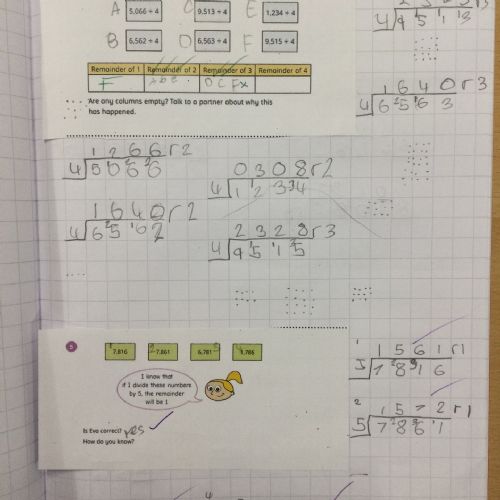 A 5,066 ÷ 4 C 9,513 ÷ 4 E 1,234 ÷ 4
B 6,562 ÷ 4 D 6,563 ÷ 4 F 9,515 ÷ 4
Remainder of 1 Remainder of 2 Remainder of 3 Remainder of 4
F A b e D C Fx
Are any columns empty? Talk to a partner about why this
has happened.
4 9 5 1 3
1 6 4 0 r 3
4 6 5 6 3
1 2 6 6 r 2
4 5 0 6 6
0 3 0 8 r 2
4 1 2 3 4
1 6 4 0 r 2
4 6 5 6 2
2 3 2 8 r 3
4 9 5 1 5
5
7,816 7,861 6,781 1,786
I know that
if I divide these numbers
by 5, the remainder
will be 1
Is Eva correct? yes
How do you know?
1
1 5 6 1 r 1
5 7 8 1 6
2
1 5 7 2 r 1
5 7 8 6 1